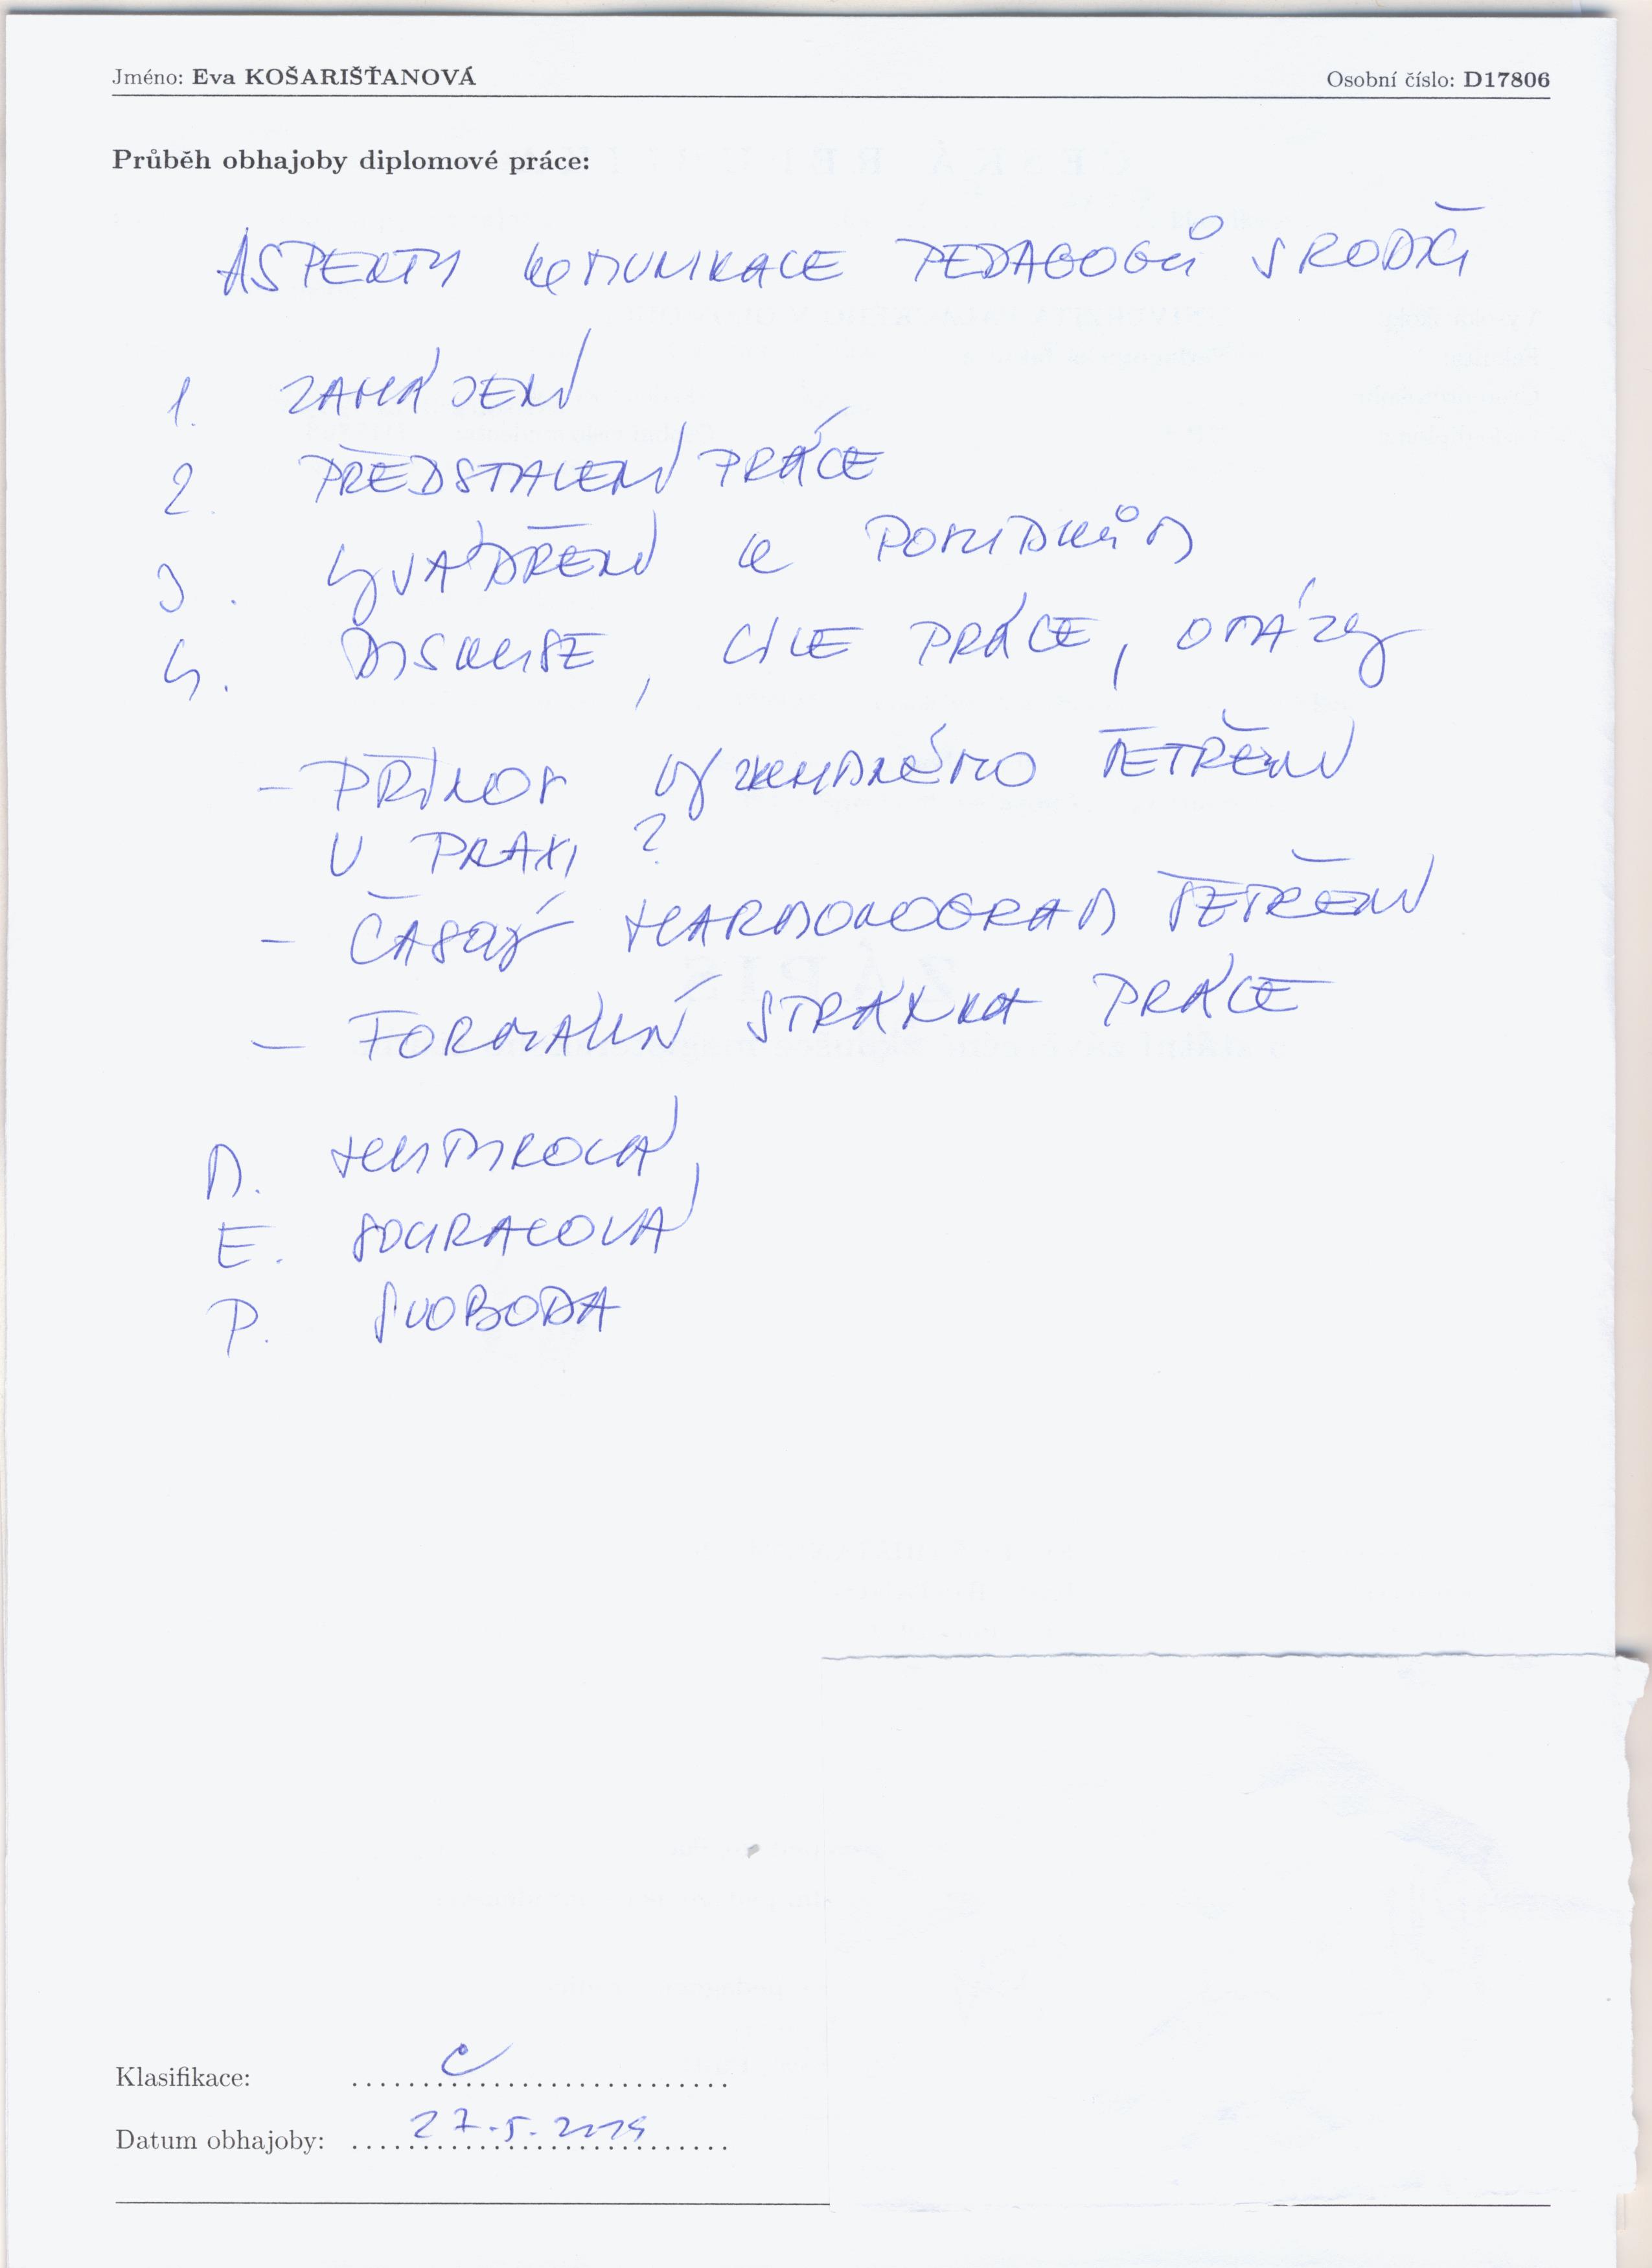 Jméno: Eva KOŠARIŠŤANOVÁ
Osobní číslo: D17806
Průběh obhajoby diplomové práce:
ASPEKTY KOMUNIKACE PEDAGOGŮ S RODIČI
1. ZAHÁJENÍ
2. PŘEDSTAVENÍ PRÁCE
3. VYJÁDŘENÍ K POSUDKŮM
4. DISKUSE, CÍLE PRÁCE, OTÁZKY
- PŘÍNOS VÝZKUMNÉHO ŠETŘENÍ
V PRAXI ?
- ČASOVÝ HARMONOGRAM ŠETŘENÍ
- FORMÁLNÍ STRÁNKA PRÁCE
M.
E. SOURALOVÁ
P. SVOBODA
Klasifikace: C
Datum obhajoby: 27.5.2019